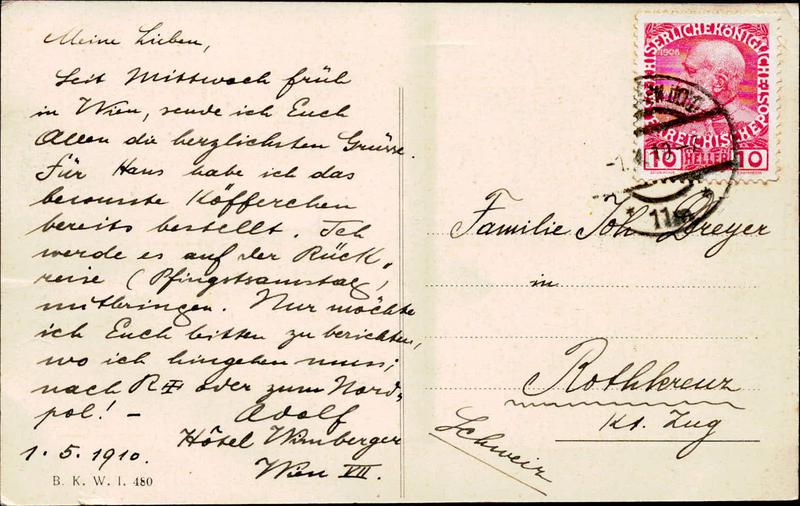 Meine Lieben,
Seit Mittwoch früh
in Wien, sende ich Euch
Allen die herzlichsten Grüsse.
Für Hans habe ich das
bewusste Köfferchen
bereits bestellt. Ich
werde es auf der Rück„
reise (Pfingstsamstag)
mitbringen. Nur möchte
ich Euch bitten zu berichten,
wo ich hingehen muss;
nach oder zum Nord„
pol! – Adolf
Hôtel Wimberger
1. 5. 1910. Wien VII.
B. K. W. I. 480
KAISERLICHEKÖNIGLICHE
ÖSTERREICHISCHE
1908
10 HELLER 10
* 11a *
Familie Joh. Dreyer
in
Rothkreuz
Kt. Zug
Schweiz